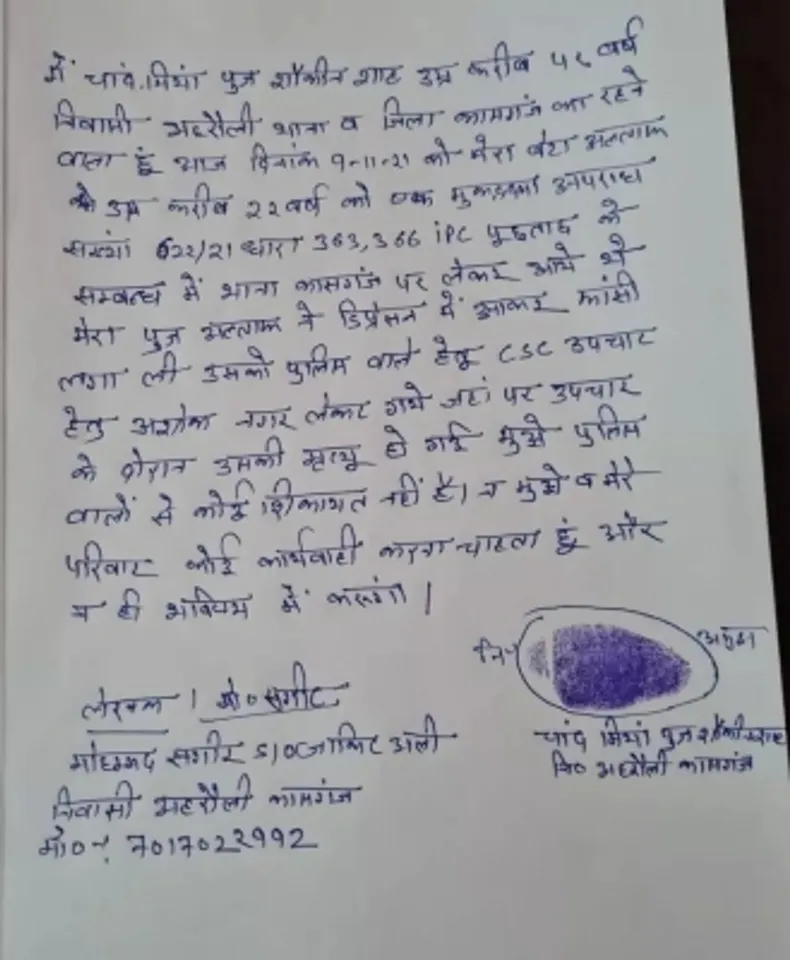 में चांद मियां पुत्र शौकीन शाह उम्र करीब ५८ वर्ष
निवासी अहरौली थाना व जिला कासगंज का रहने
वाला हूं आज दिनांक 9-11-21 को मेरा बेटा अल्ताफ
को उम्र करीब २२ वर्ष को एक मुकद्दमा अपराध
संख्या 622/21 धारा 363,366 IPC पूछताछ के
सम्बन्ध में थाना कासगंज पर लेकर आये थे
मेरा पुत्र अल्ताफ ने डिप्रेसन में आकर फांसी
लगा ली उसको पुलिस वाले हेतू CSC उपचार
हेतु अशोक नगर लेकर गये जहां पर उपचार
के दौरान उसकी मृत्यू हो गई मुझे पुलिस
वालों से कोई शिकायत नहीं है। न मुझे व मेरे
परिवार कोई कार्यवाही करना चाहता हूं और
न ही भविष्य में करूंगा।
नि० अंगूठा
चांद मियां पुत्र शौकीन शाह
नि० अहरौली कासगंज
लेखक। मो० सगीर
मोहम्मद सगीर S/O जाकिर अली
निवासी अहरौली कासगंज
मो० नं 7017022992